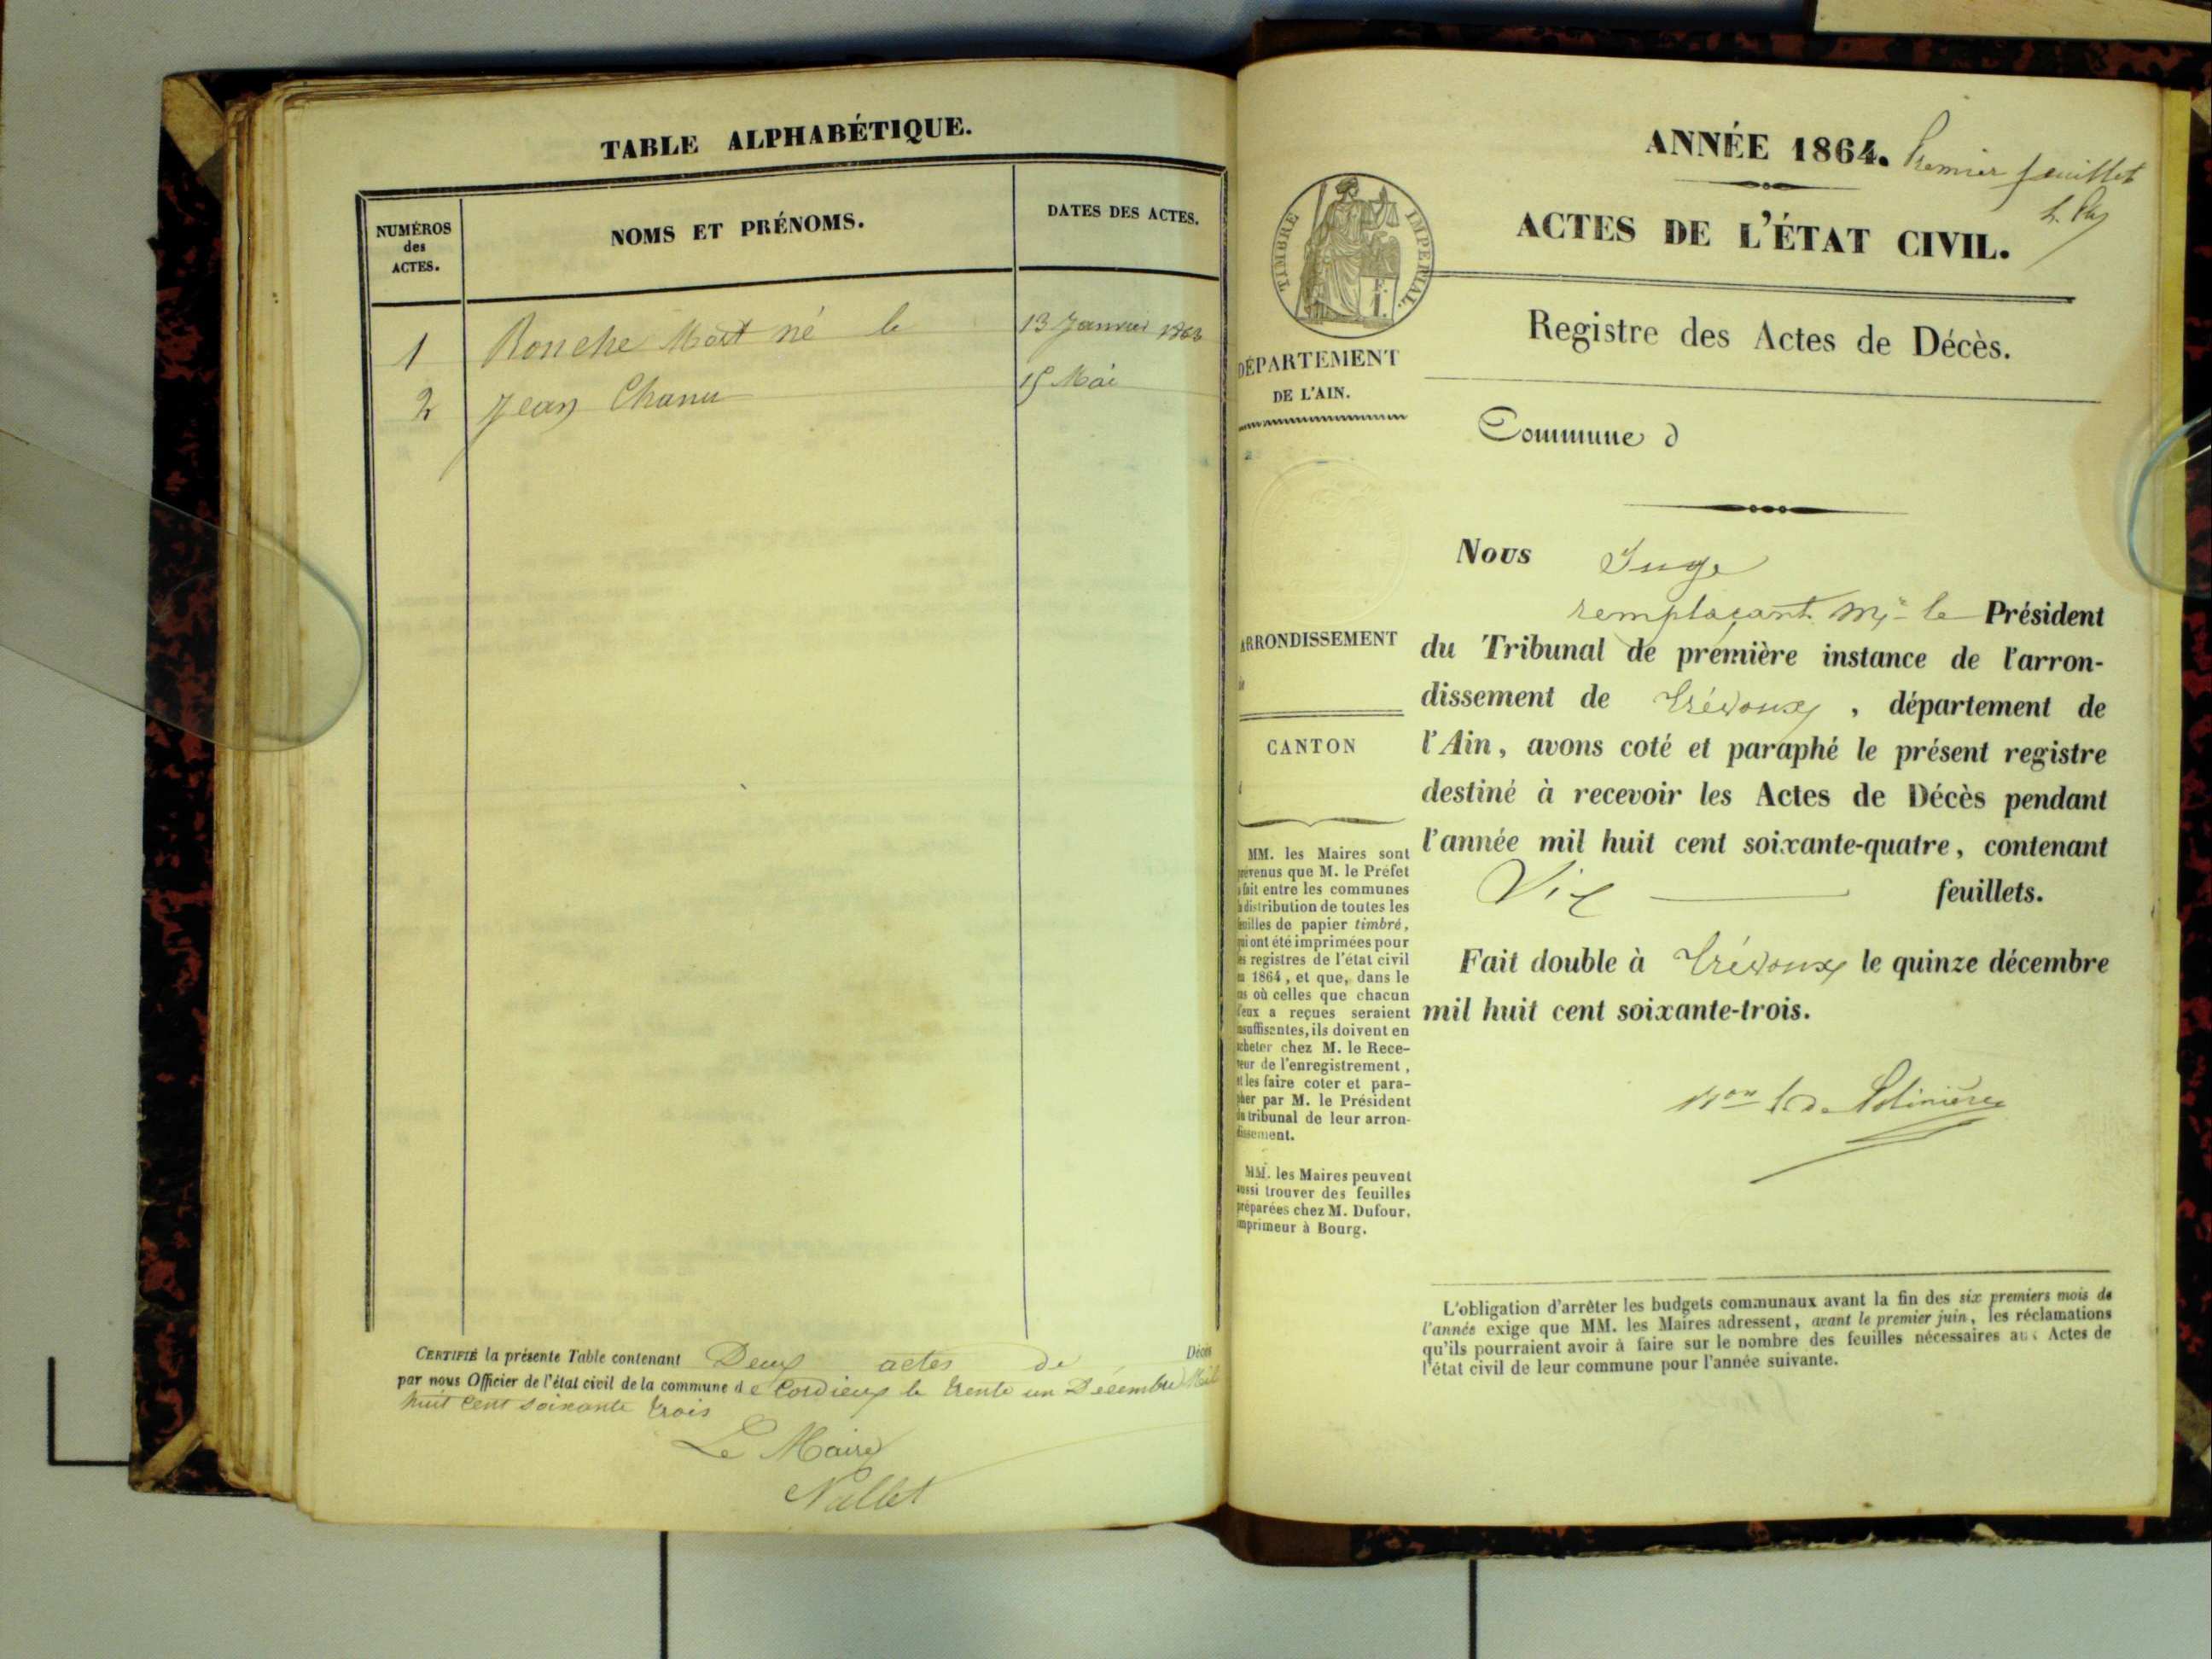 TABLE ALPHABÉTIQUE.
NUMÉROS
des
ACTES.
NOMS ET PRÉNOMS.
DATES DES ACTES.
1 Bouche Mort né le 13 Janvier 1863
2 Jean Chanu 15 Mai
CERTIFIÉ la présente Table contenant Deux actes de Décès
par nous Officier de l'état civil de la commune de Cordieux le trente un Décembre Mil
huit cent soixante trois
Le Maire
Nallet
ANNÉE 1864. Premier feuillet
ACTES DE L'ÉTAT CIVIL.
TIMBRE IMPERIAL.
Registre des Actes de Décès.
DÉPARTEMENT
DE L'AIN.
Commune d
Nous Juge
remplaçant Mr le Président
ARRONDISSEMENT
du Tribunal de première instance de l'arron-
dissement de Trévoux, département de
CANTON
l'Ain, avons coté et paraphé le présent registre
destiné à recevoir les Actes de Décès pendant
l'année mil huit cent soixante-quatre, contenant
feuillets.
Fait double à Trévoux le quinze décembre
mil huit cent soixante-trois.
MM. les Maires sont
prévenus que M. le Préfet
a fait entre les communes
la distribution de toutes les
feuilles de papier timbré,
qui ont été imprimées pour
les registres de l'état civil
en 1864, et que, dans le
cas où celles que chacun
d'eux a reçues seraient
insuffisantes, ils doivent en
acheter chez M. le Rece-
veur de l'enregistrement,
et les faire coter et para-
pher par M. le Président
du tribunal de leur arron-
dissement.
MM. les Maires peuvent
aussi trouver des feuilles
préparées chez M. Dufour,
imprimeur à Bourg.
L'obligation d'arrêter les budgets communaux avant la fin des six premiers mois de
l'année exige que MM. les Maires adressent, avant le premier juin, les réclamations
qu'ils pourraient avoir à faire sur le nombre des feuilles nécessaires aux Actes de
l'état civil de leur commune pour l'année suivante.